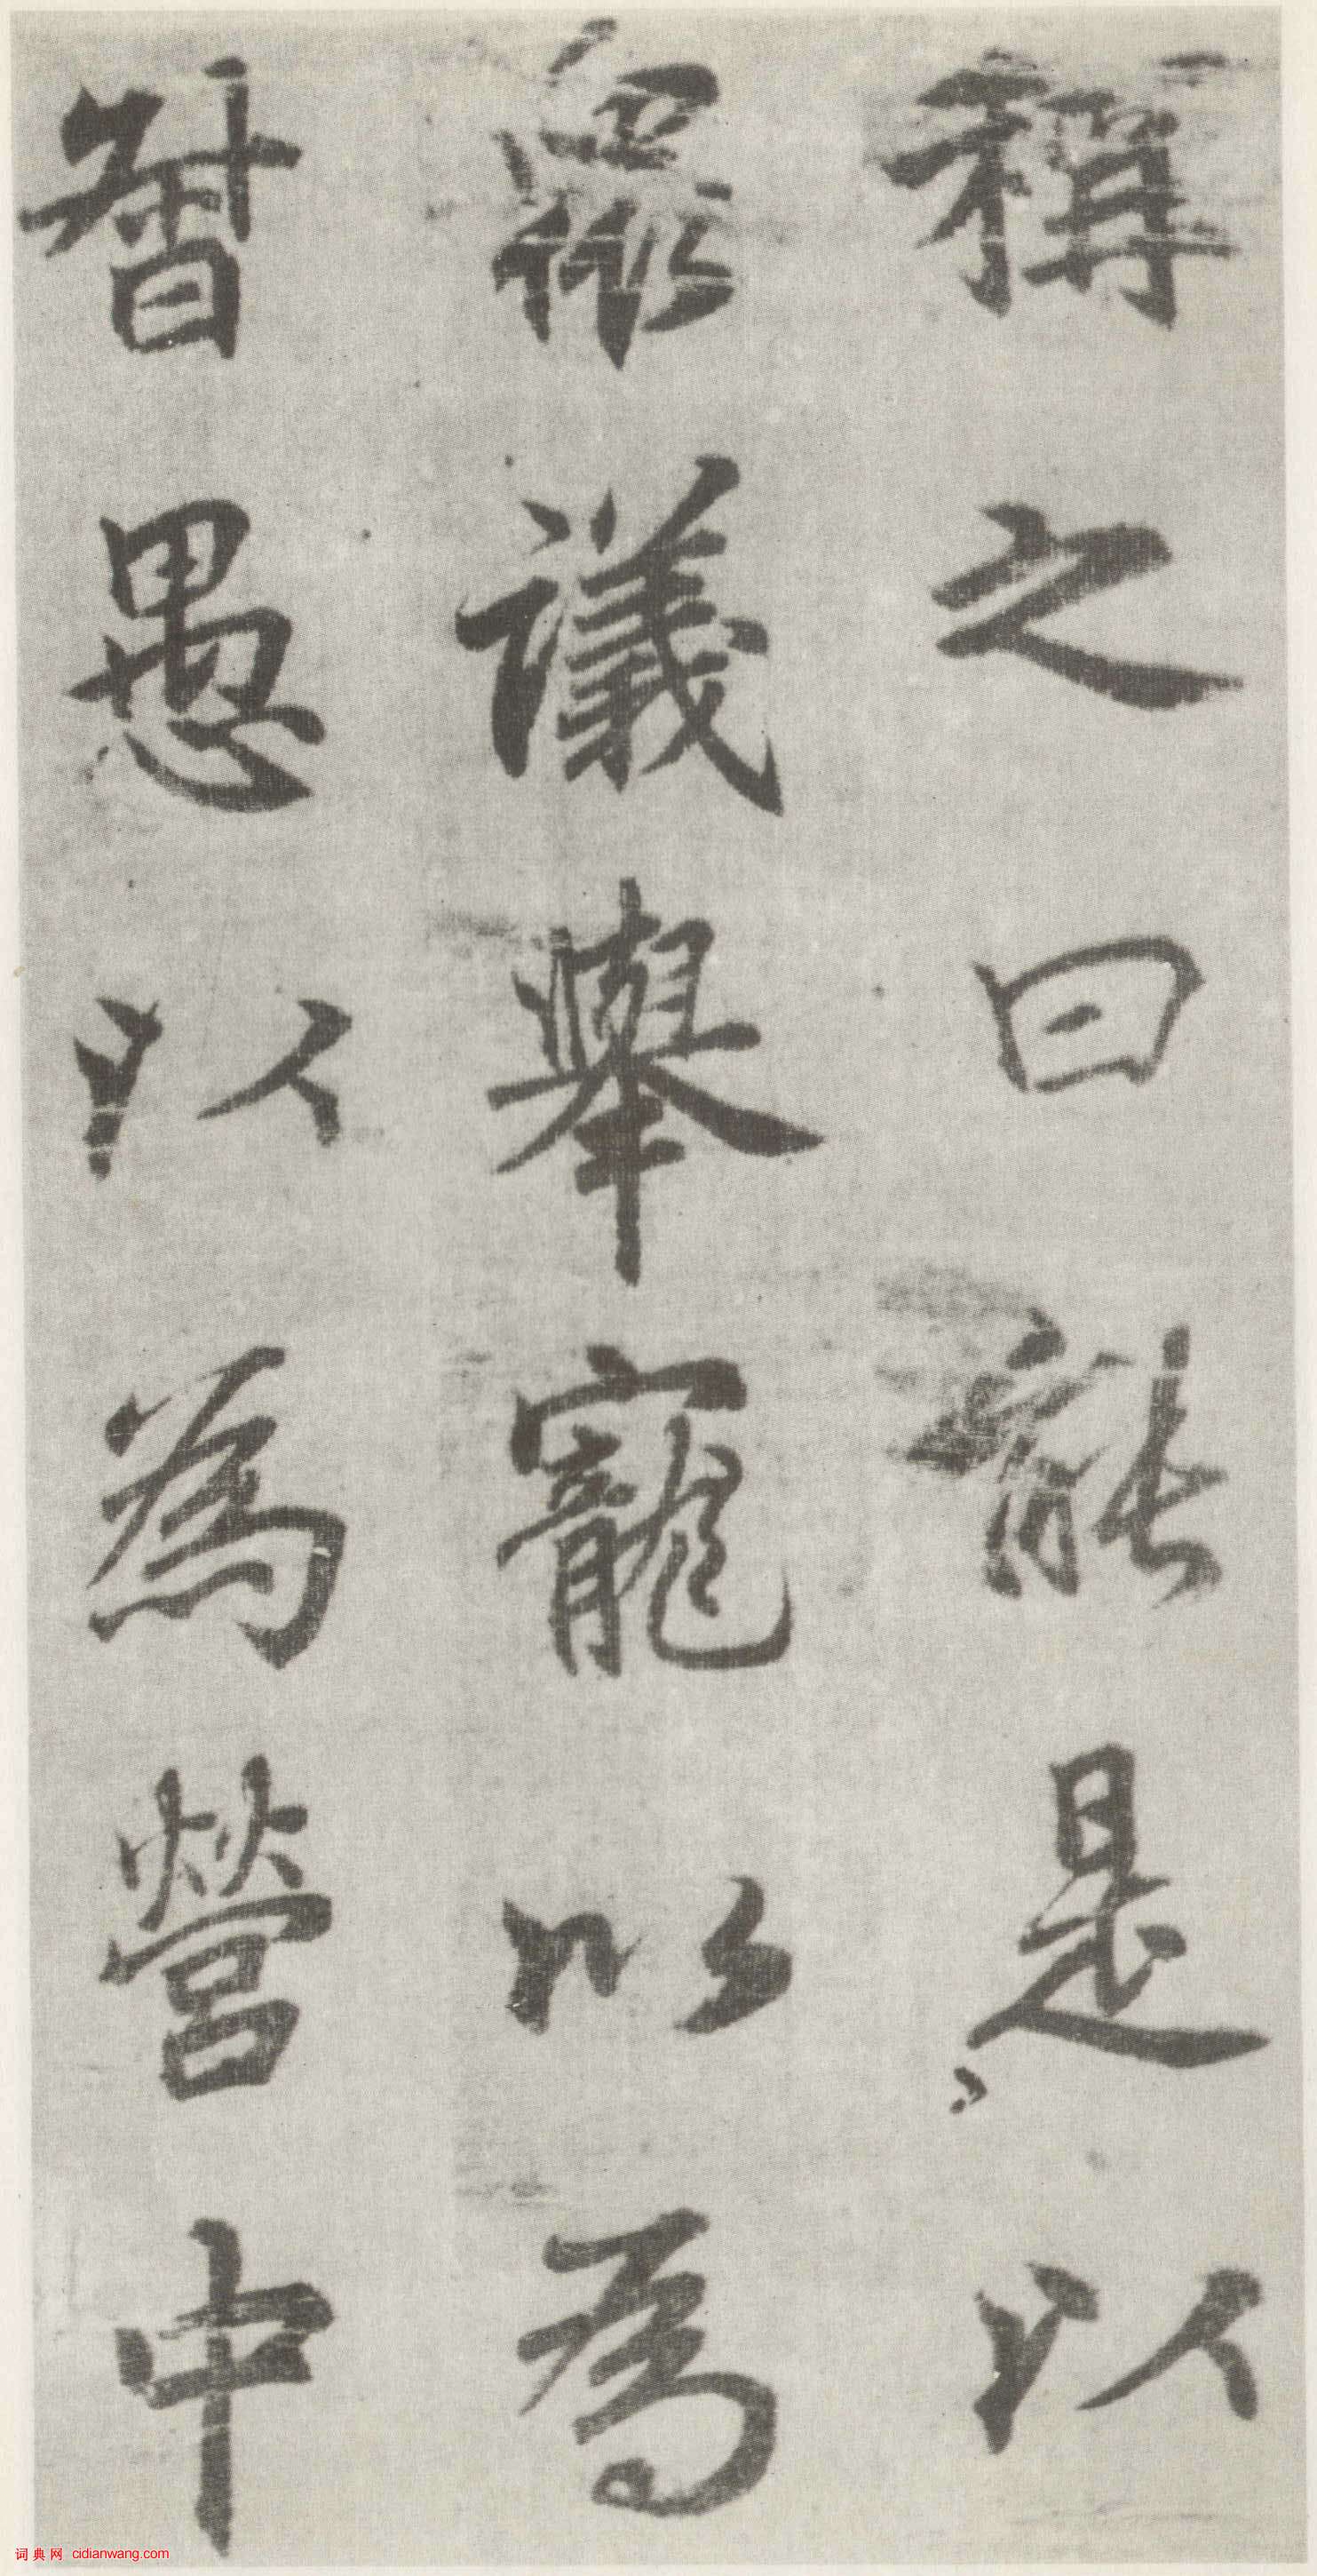 稱之曰能是以
眾議舉寵以為
督愚以為營中
词典网 cidianwang.com